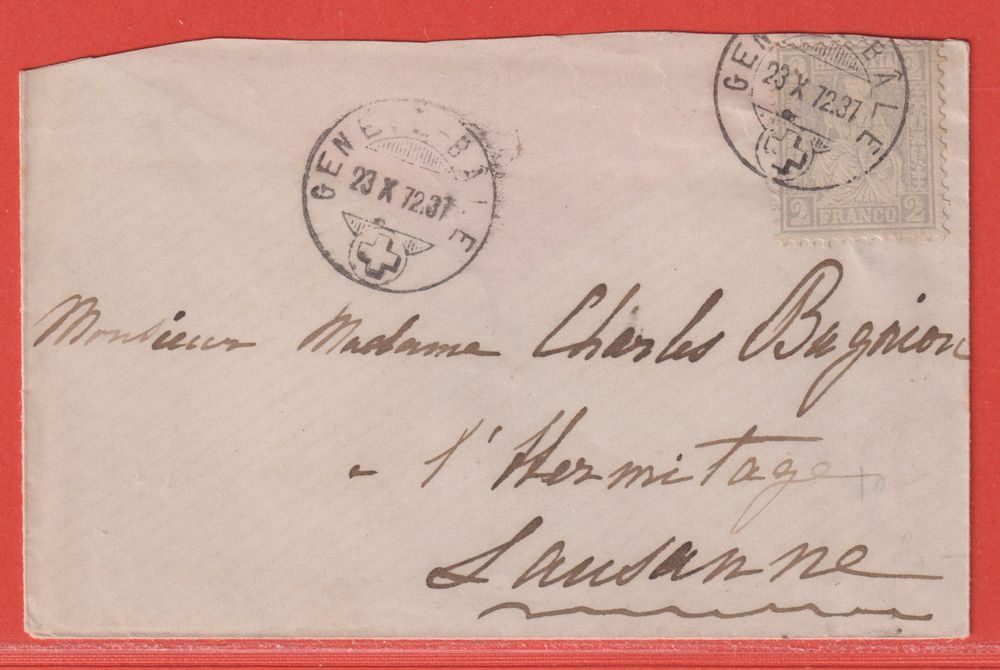 GENÈVE-BÂLE
23 X 72.37
GENÈVE-BÂLE
23 X 72.37
2 FRANCO 2
Monsieur Madame Charles Bugnion
- l'Hermitage
Lausanne